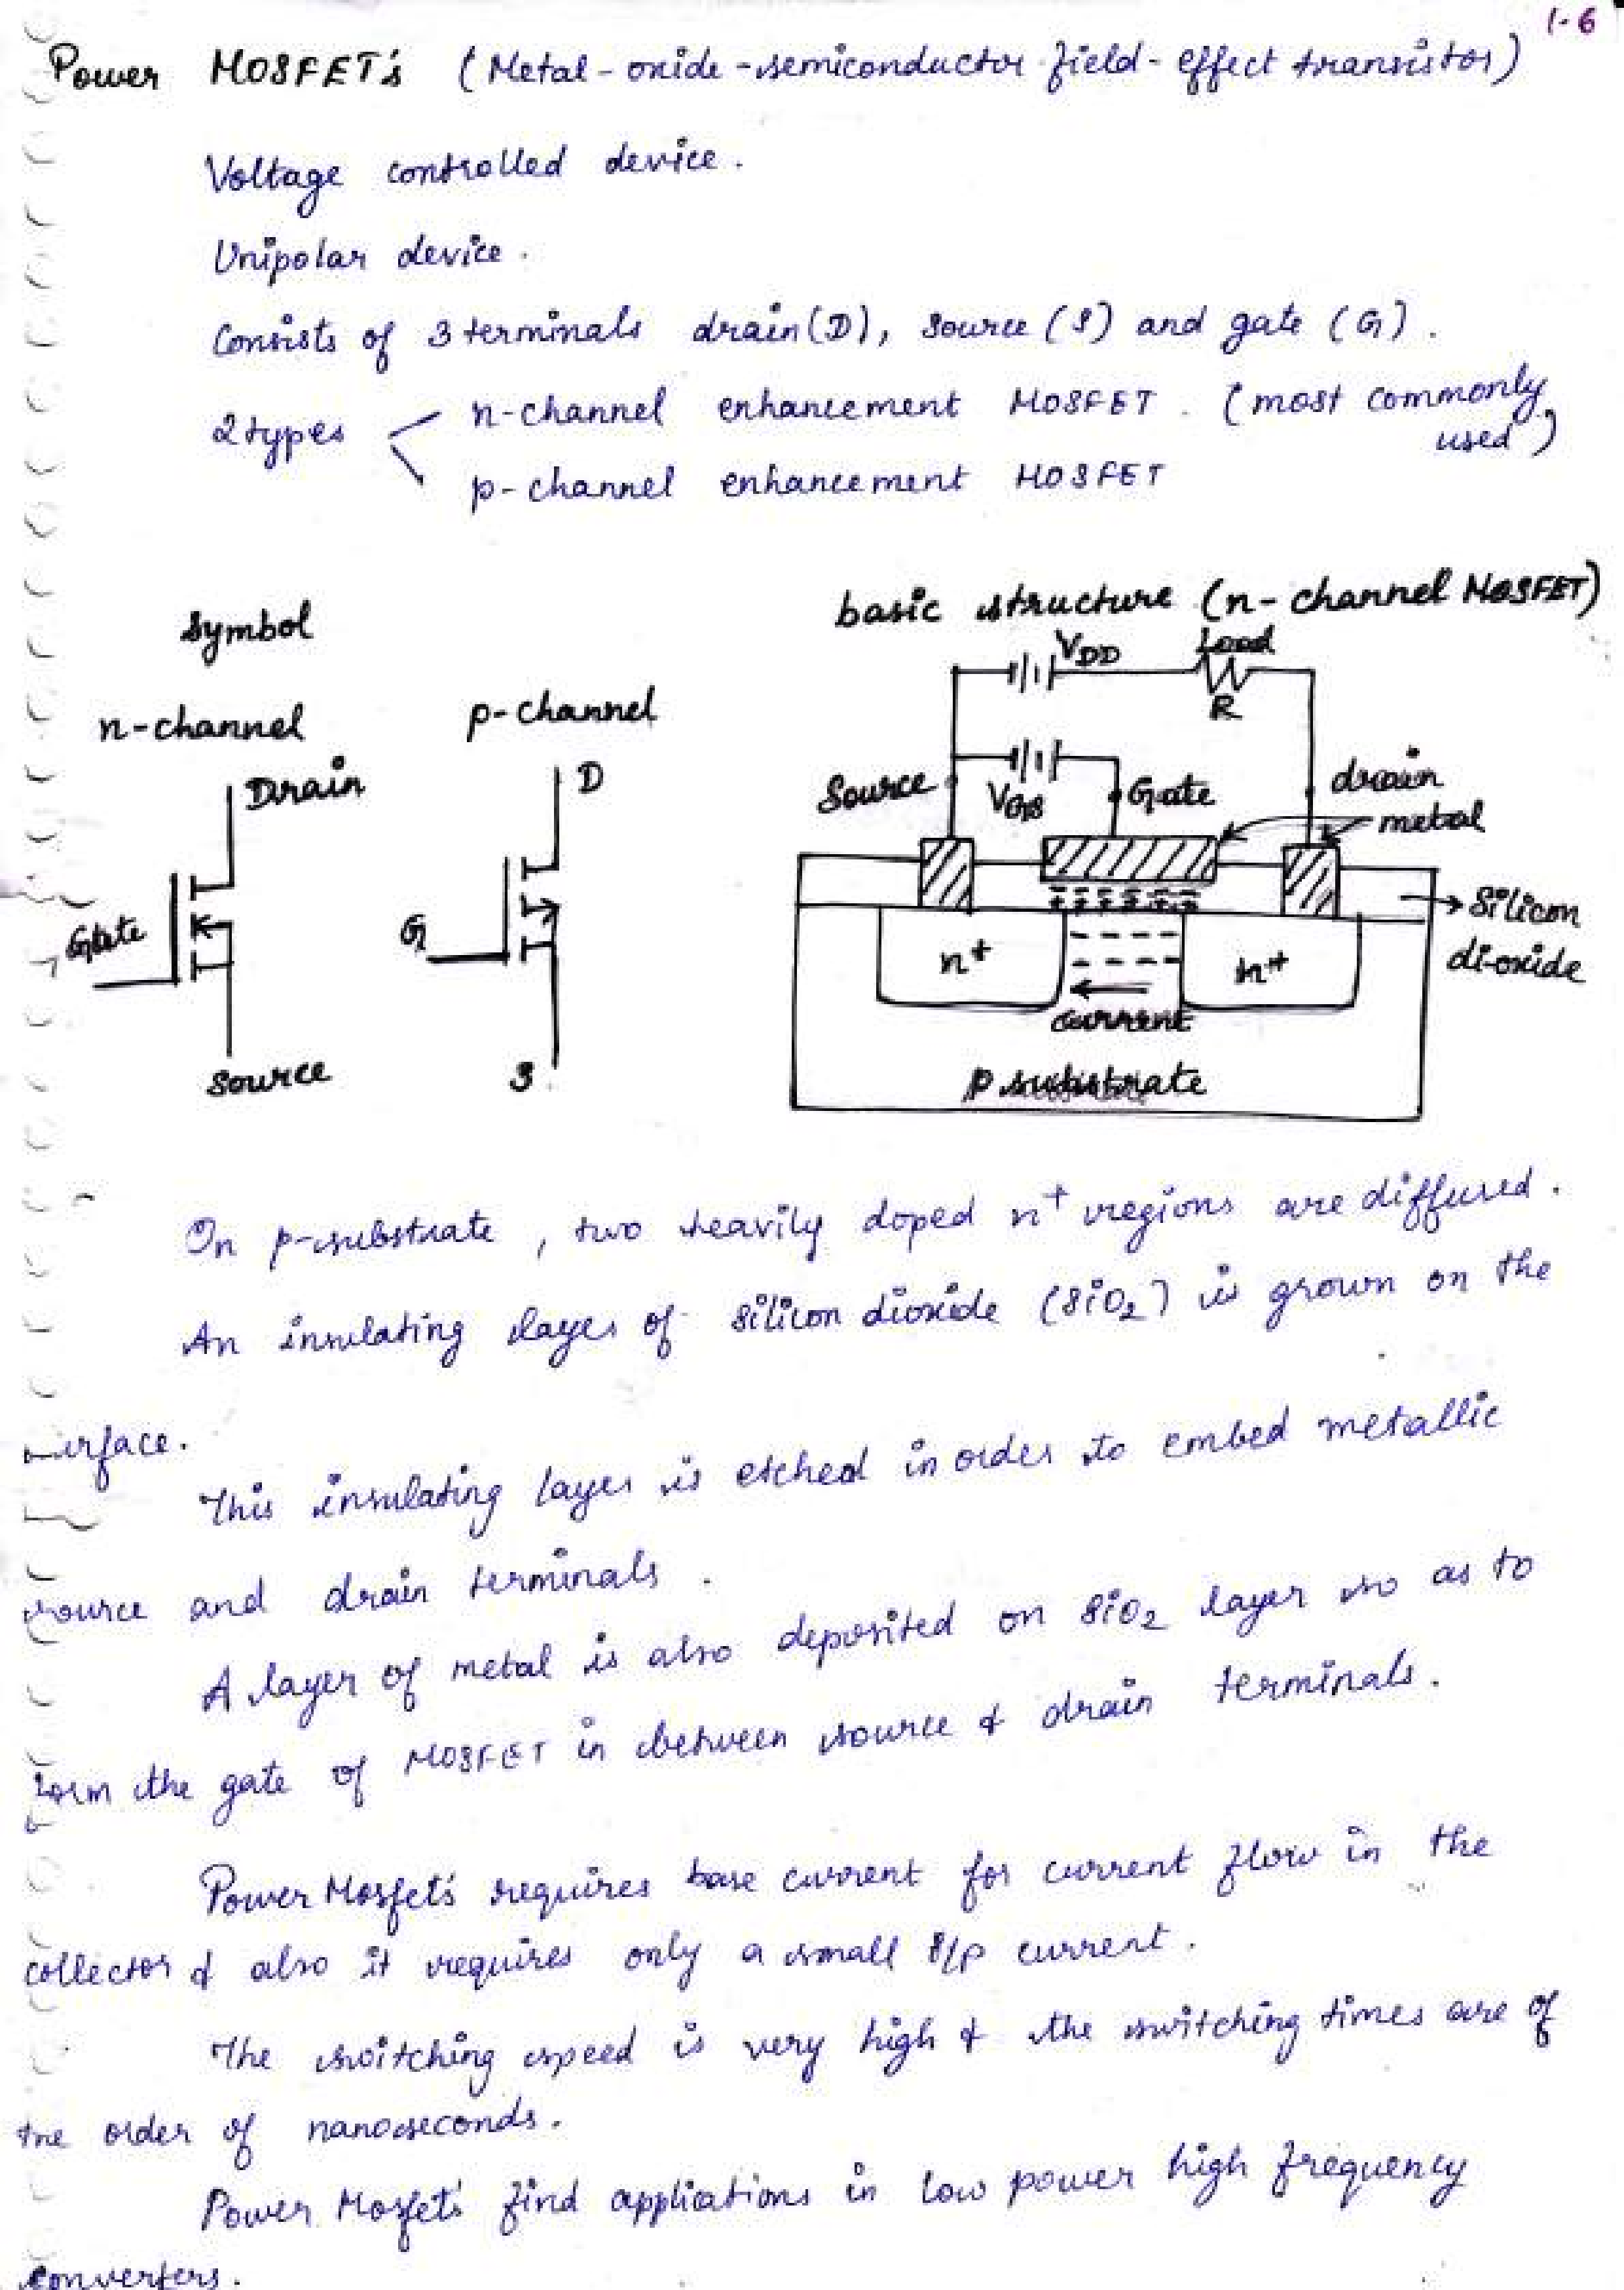 1-6
Power MOSFET's (Metal-oxide-semiconductor field-effect transistor)
Voltage controlled device.
Unipolar device.
Consists of 3 terminals drain(D), source (S) and gate (G).
2 types
n-channel enhancement MOSFET. (most commonly
used)
p-channel enhancement MOSFET
Symbol
basic structure (n-channel MOSFET)
n-channel
p-channel
Drain
Gate
Source
D
G
S
VDD
Load
R
Source
VGS
Gate
drain
metal
Silicon
di-oxide
n+
n+
current
p substrate
On p-substrate, two heavily doped n+ regions are diffused.
An insulating layer of silicon dioxide (SiO2) is grown on the
surface.
This insulating layer is etched in order to embed metallic
source and drain terminals.
A layer of metal is also deposited on SiO2 layer so as to
form the gate of MOSFET in between source & drain terminals.
Power Mosfet's requires base current for current flow in the
collector & also it requires only a small i/p current.
The switching speed is very high & the switching times are of
the order of nanoseconds.
Power Mosfet's find applications in low power high frequency
converters.